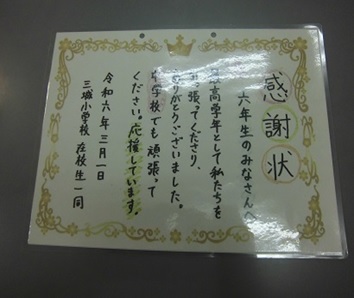 感謝状
六年生のみなさんへ
最高学年として私たちを
引っ張ってくださり、
ありがとうございました。
中学校でも頑張って
ください。応援しています。
令和六年三月一日
三城小学校 在校生一同